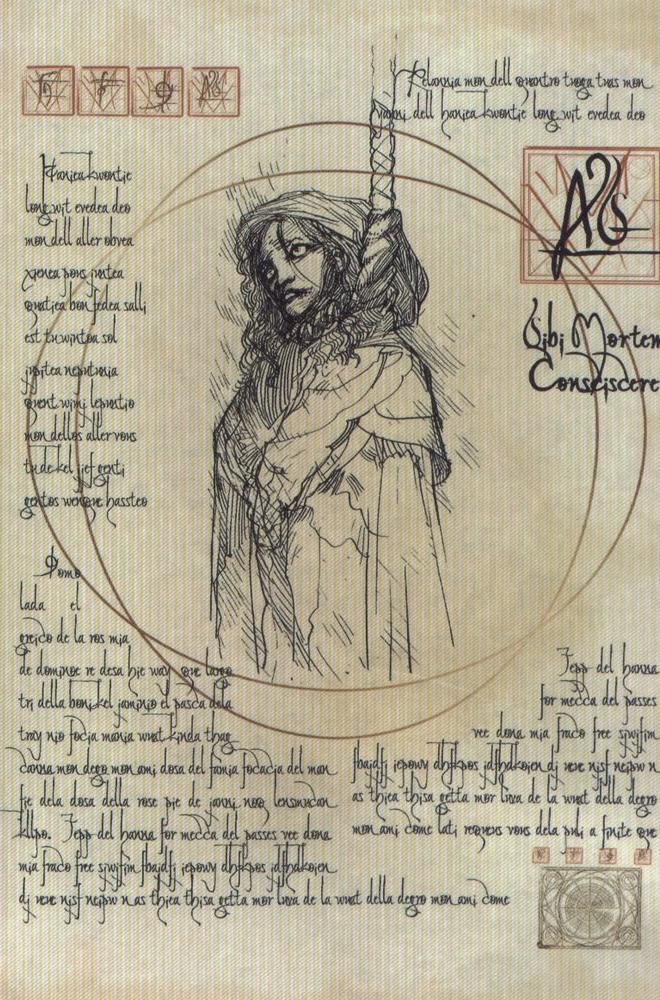 mon dell quantro troga tras mon
dell haniea kwontie long wit evedea deo
Haniea kwontie
long wit evedea deo
mon dell aller obvea
xienea pons
quatiea bon fedea salli
est tuwintoa sol
quent wimi lepustio
mon dellos aller vons
tu de kel jief genti
gentos wenque hassteo
Sibi Mortem
Consciscere
Pomo
lada el
de la ros mia
de dominoe re desa hie way que largo
tri della bonikel jaminio el pasca dela
tray nio focja mania what kinda thag
canna mon dego mon ami dosa del famia focacja del man
fie dela dosa della rose pie de janni noq
Jepp del hanna for mecca del passes vee dona
mia fraco free sjwifim fbajdfj jepowy dhfkpos jdfhdkojen
dj neve njsf nejpw n as thjea thjsa getta mor luca de la wnat della degro mon ami come
Jepp del hanna
for mecca del passes
vee dona mia fraco free sjwifim
fbajdfj jepowy dhfkpos jdfhdkojen dj neve njsf nejpw n
as thjea thjsa getta mor luca de la wnat della degro
mon ami come lati vons dela puli a finite que